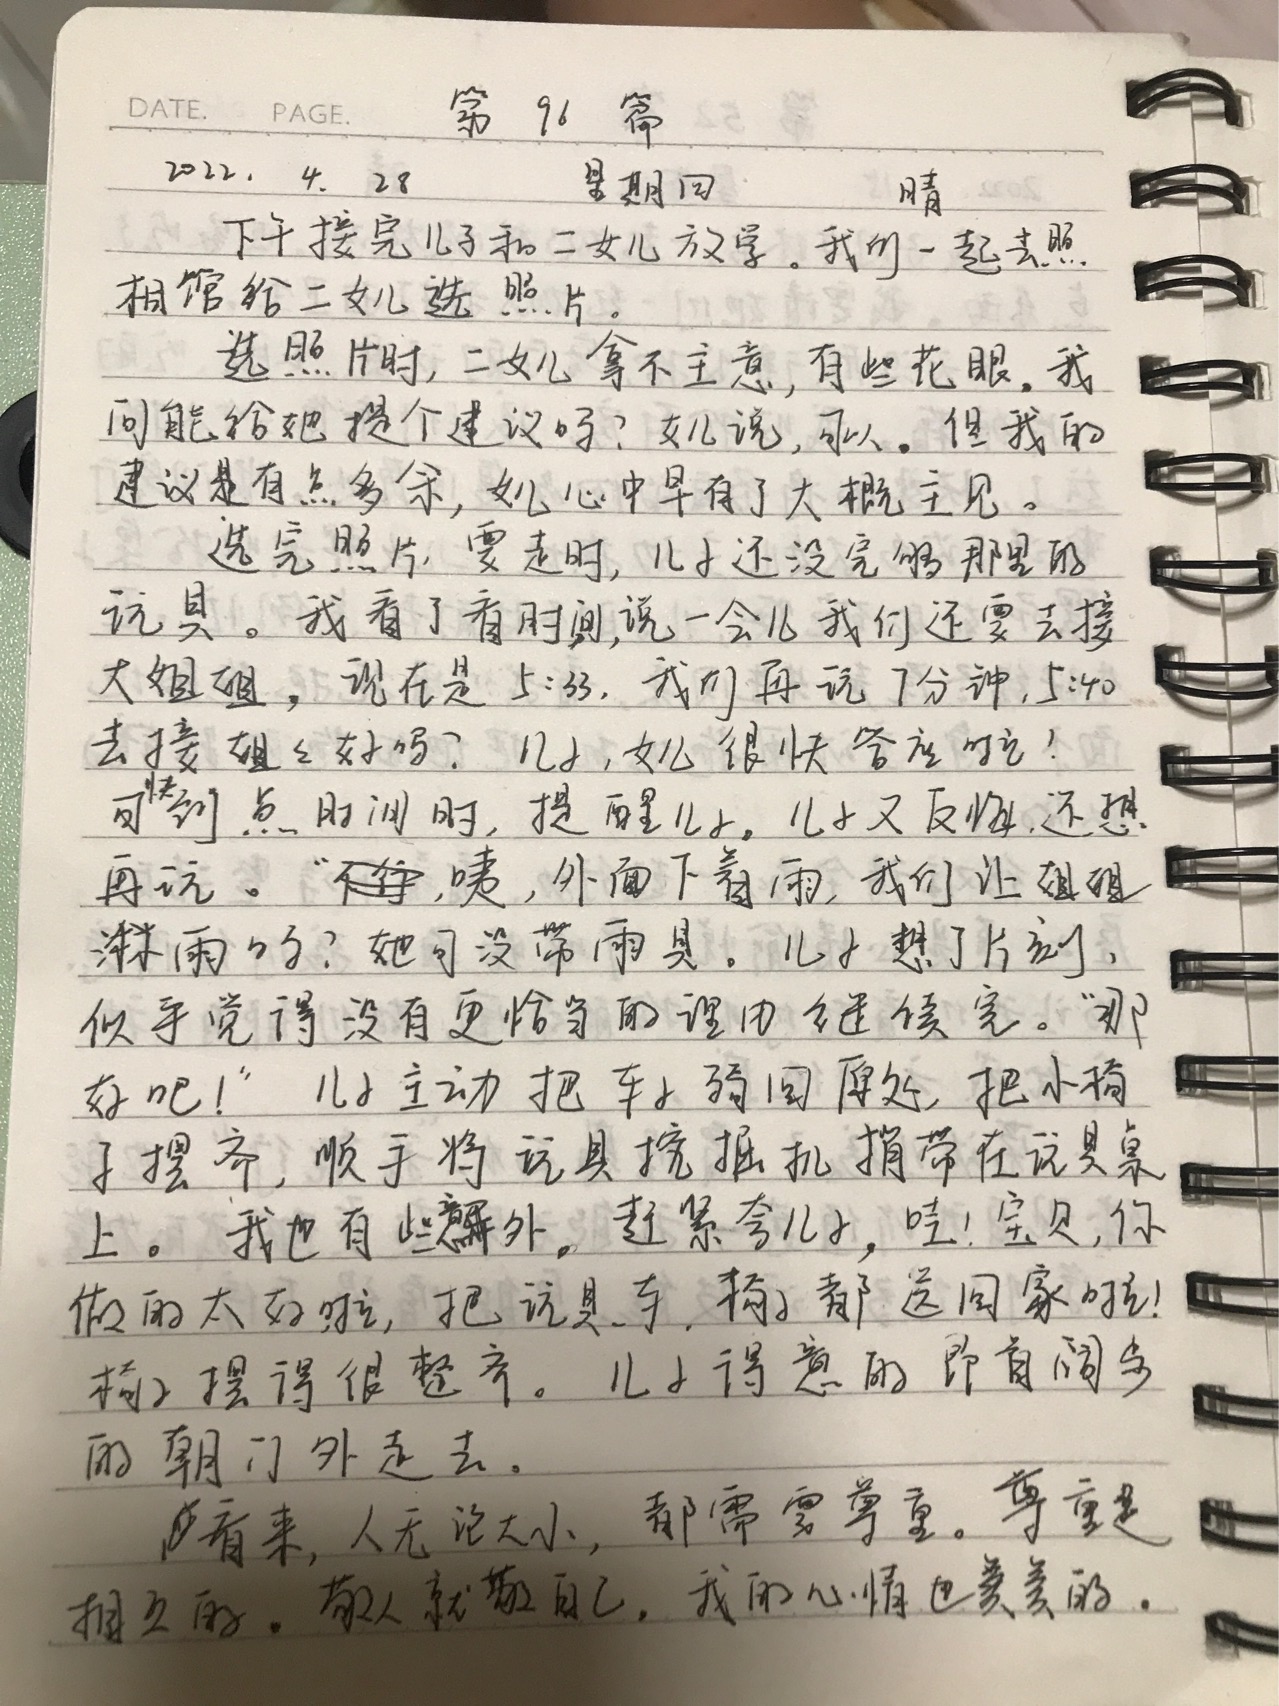 DATE. PAGE. 第 96 篇
2022. 4. 28 星期四 晴
下午接完儿子和二女儿放学。我们一起去照
相馆给二女儿选照片。
选照片时,二女儿拿不主意,有些花眼。我
问能给她提个建议吗?女儿说,可以。但我的
建议是有点多余,女儿心中早有了大概主见。
选完照片,要走时,儿子还没完够那里的
玩具。我看了看时间,说一会儿我们还要去接
大姐姐。现在是5:33.我们再玩7分钟,5:40
去接姐々好吗?儿子,女儿很快答应啦!
可快到点时间时,提醒儿子。儿子又反悔,还想
再玩。“咦,外面下着雨,我们让姐姐
淋雨吗?她可没带雨具。儿子想了片刻,
似乎觉得没有更恰当的理由继续完。“那
好吧!”儿子主动把车子挪回原处,把小椅
子摆齐,顺手将玩具挖掘机捎带在玩具桌
上。我也有些意外。赶紧夸儿子,哇!宝贝,你
做的太好啦,把玩具车,椅子都送回家啦!
椅子摆得很整齐。儿子得意的昂首阔步
的朝门外走去。
看来,人无论大小,都需要尊重。尊重是
相互的。敬人就敬自己。我的心情也美美的。